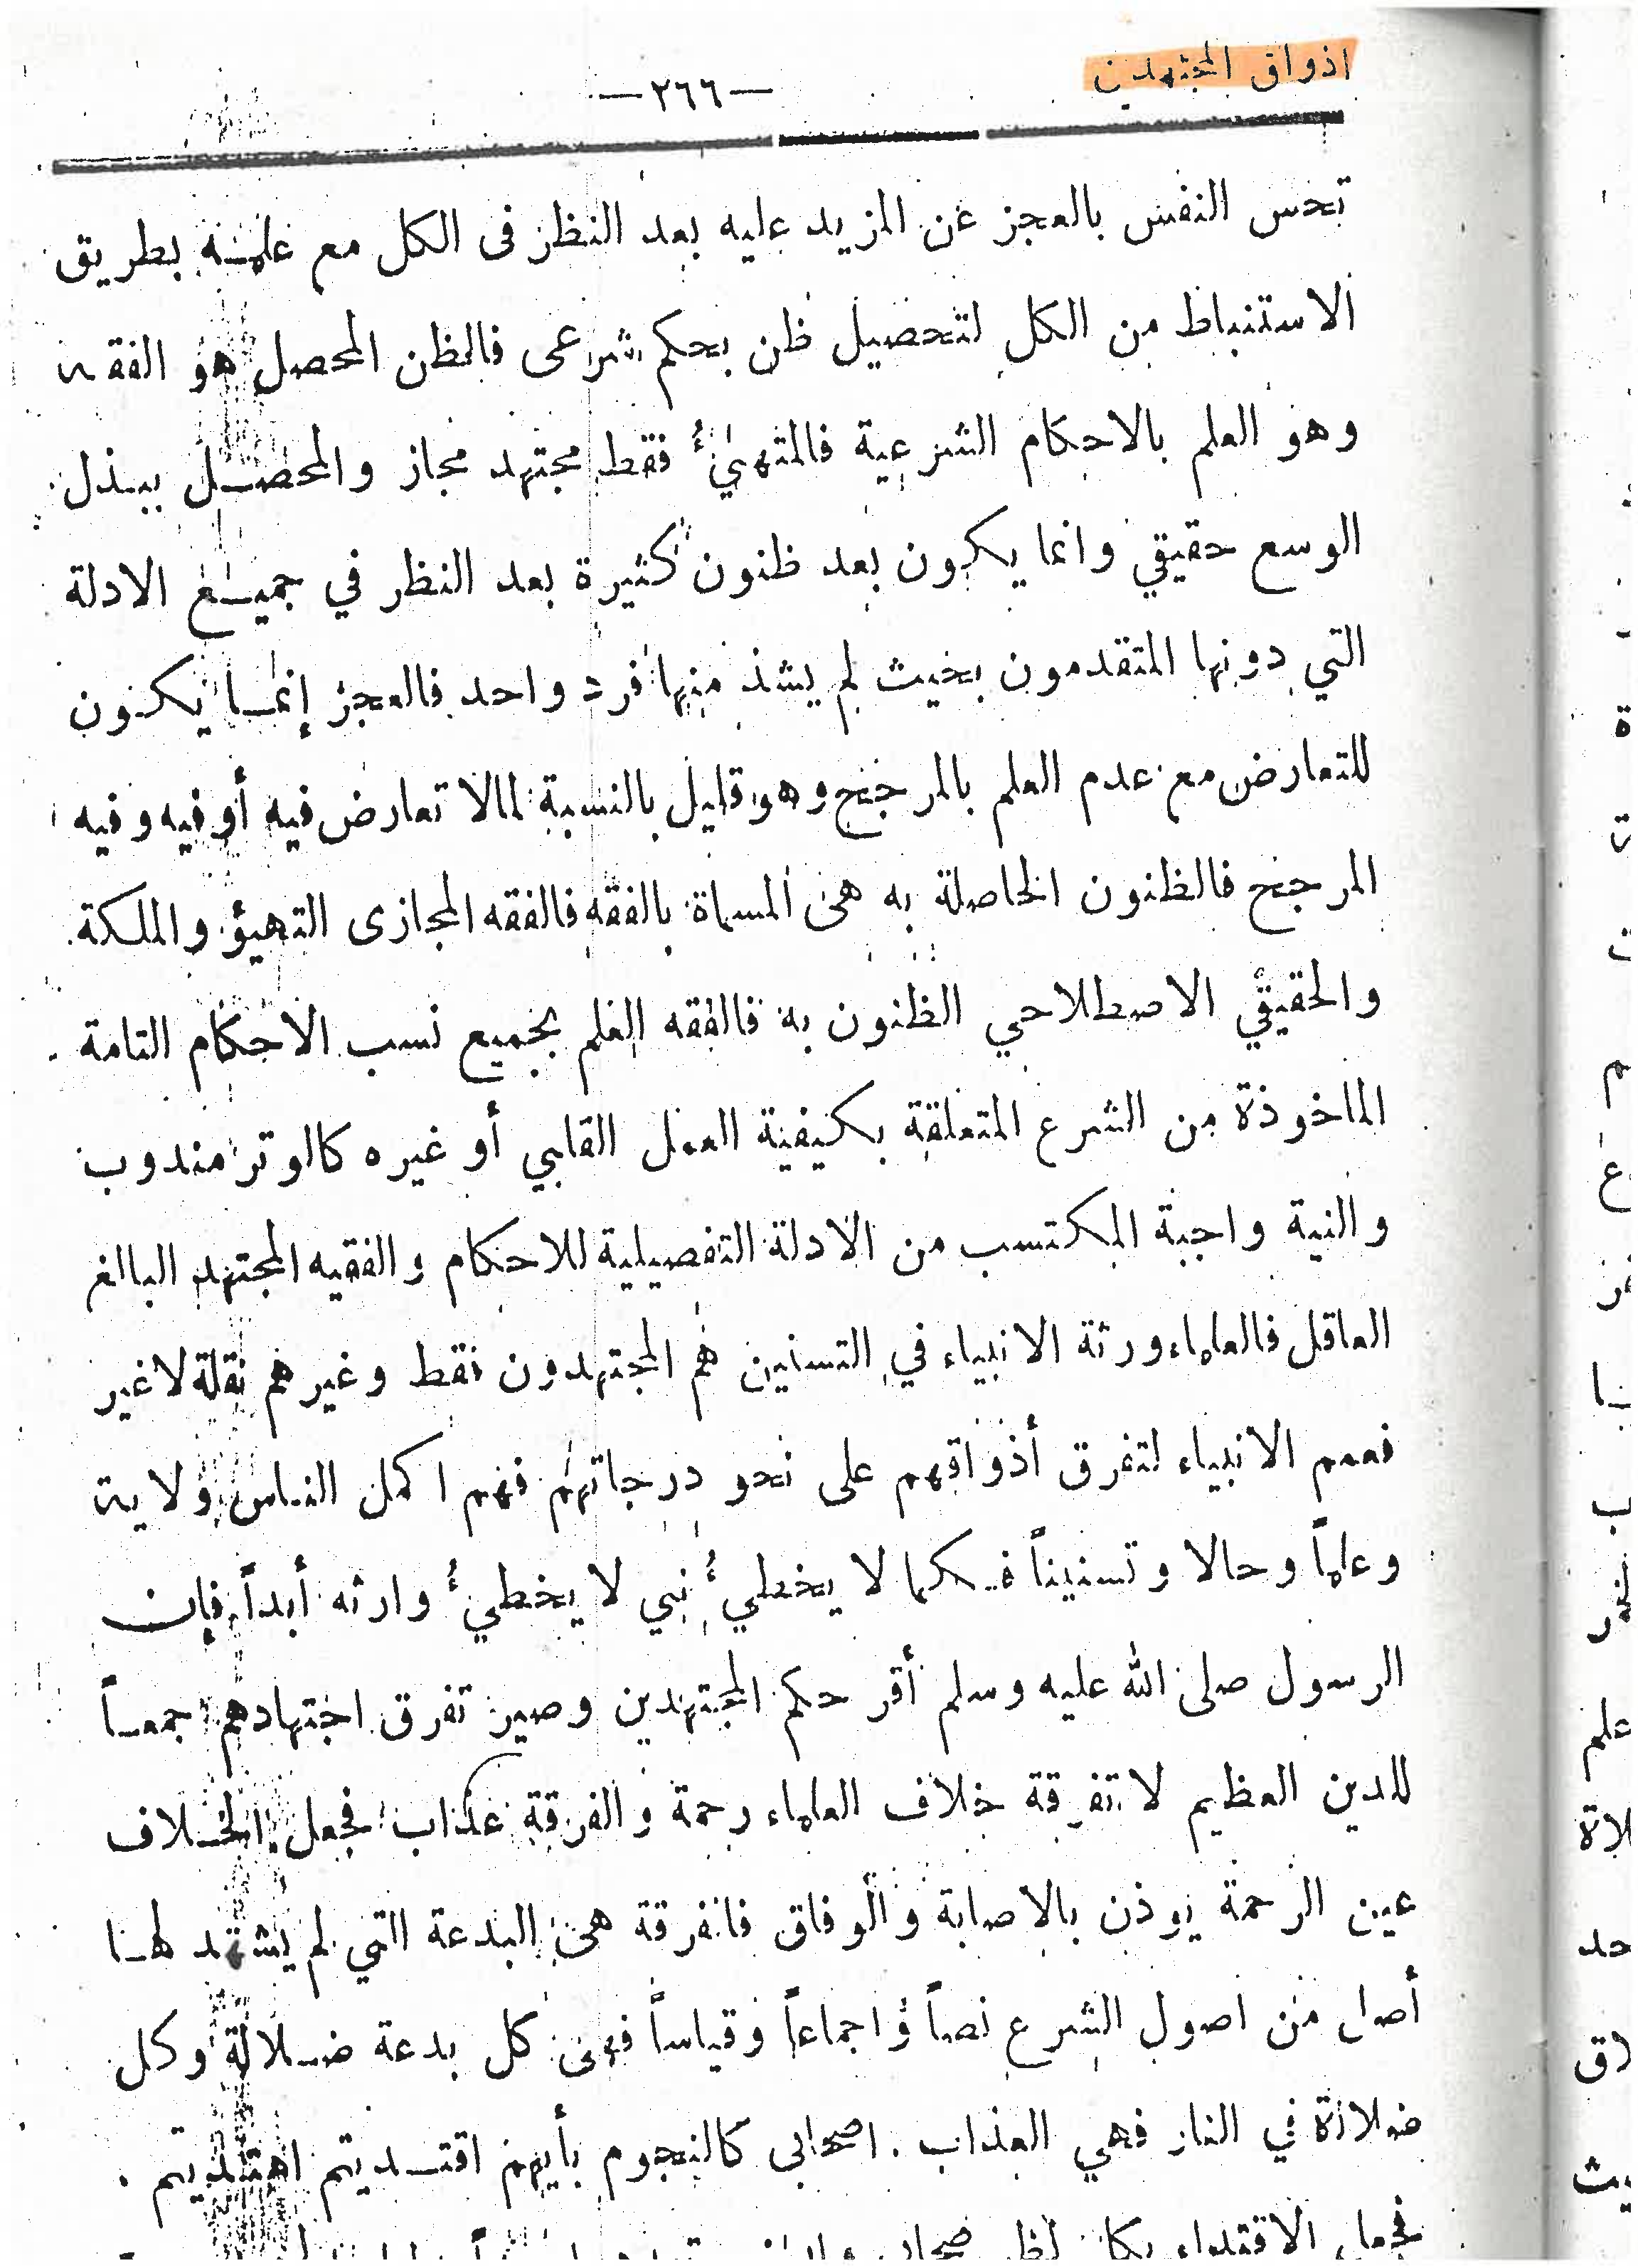 اذواق المجتهدين
—٢٦٦—
تحس النفس بالعجز عن المزيد عليه بعد النظر فى الكل مع علمه بطريق
الاستنباط من الكل لتحصيل ظن بحكم شرعى فالظن المحصل هو الفقه
وهو العلم بالاحكام الشرعية فالمتهيئ فقط مجتهد مجاز والمحصل ببذل
الوسع حقيقي وانما يكون بعد ظنون كثيرة بعد النظر في جميع الادلة
التي دونها المتقدمون بحيث لم يشذ منها فرد واحد فالعجز إنما يكون
للتعارض مع عدم العلم بالمرجح وهو قليل بالنسبة لمالا تعارض فيه أو فيه وفيه
المرجح فالظنون الحاصلة به هى المسماة بالفقه فالفقه المجازى التهيؤ والملكة
والحقيقي الاصطلاحي الظنون به فالفقه العلم بجميع نسب الاحكام التامة
الماخوذة من الشرع المتعلقة بكيفية العمل القلبي أو غيره كالوتر مندوب
والنية واجبة المكتسب من الادلة التفصيلية للاحكام والفقيه المجتهد البالغ
العاقل فالعلماء ورثة الانبياء في التسنين هم المجتهدون فقط وغيرهم نقلة لاغير
فعمم الانبياء لتفرق أذواقهم على نحو درجاتهم فهم اكمل الناس ولاية
وعلماً وحالا وتسنيناً فكما لا يخطيُ نبي لا يخطيُ وارثه أبداً فإن
الرسول صلى الله عليه وسلم أقر حكم المجتهدين وصير تفرق اجتهادهم جمعاً
للدين العظيم لا تفرقة خلاف العلماء رحمة والفرقة عذاب فجعل الخلاف
عين الرحمة يوذن بالاصابة والوفاق فالفرقة هى البدعة التي لم يشهد لها
أصل من اصول الشرع نصاً واجماعاً وقياساً فهى كل بدعة ضلالة وكل
ضلالة في النار فهي العذاب . اصحابى كالنجوم بأيهم اقتديتم اهتديتم .
فجعل الاقتداء بكل